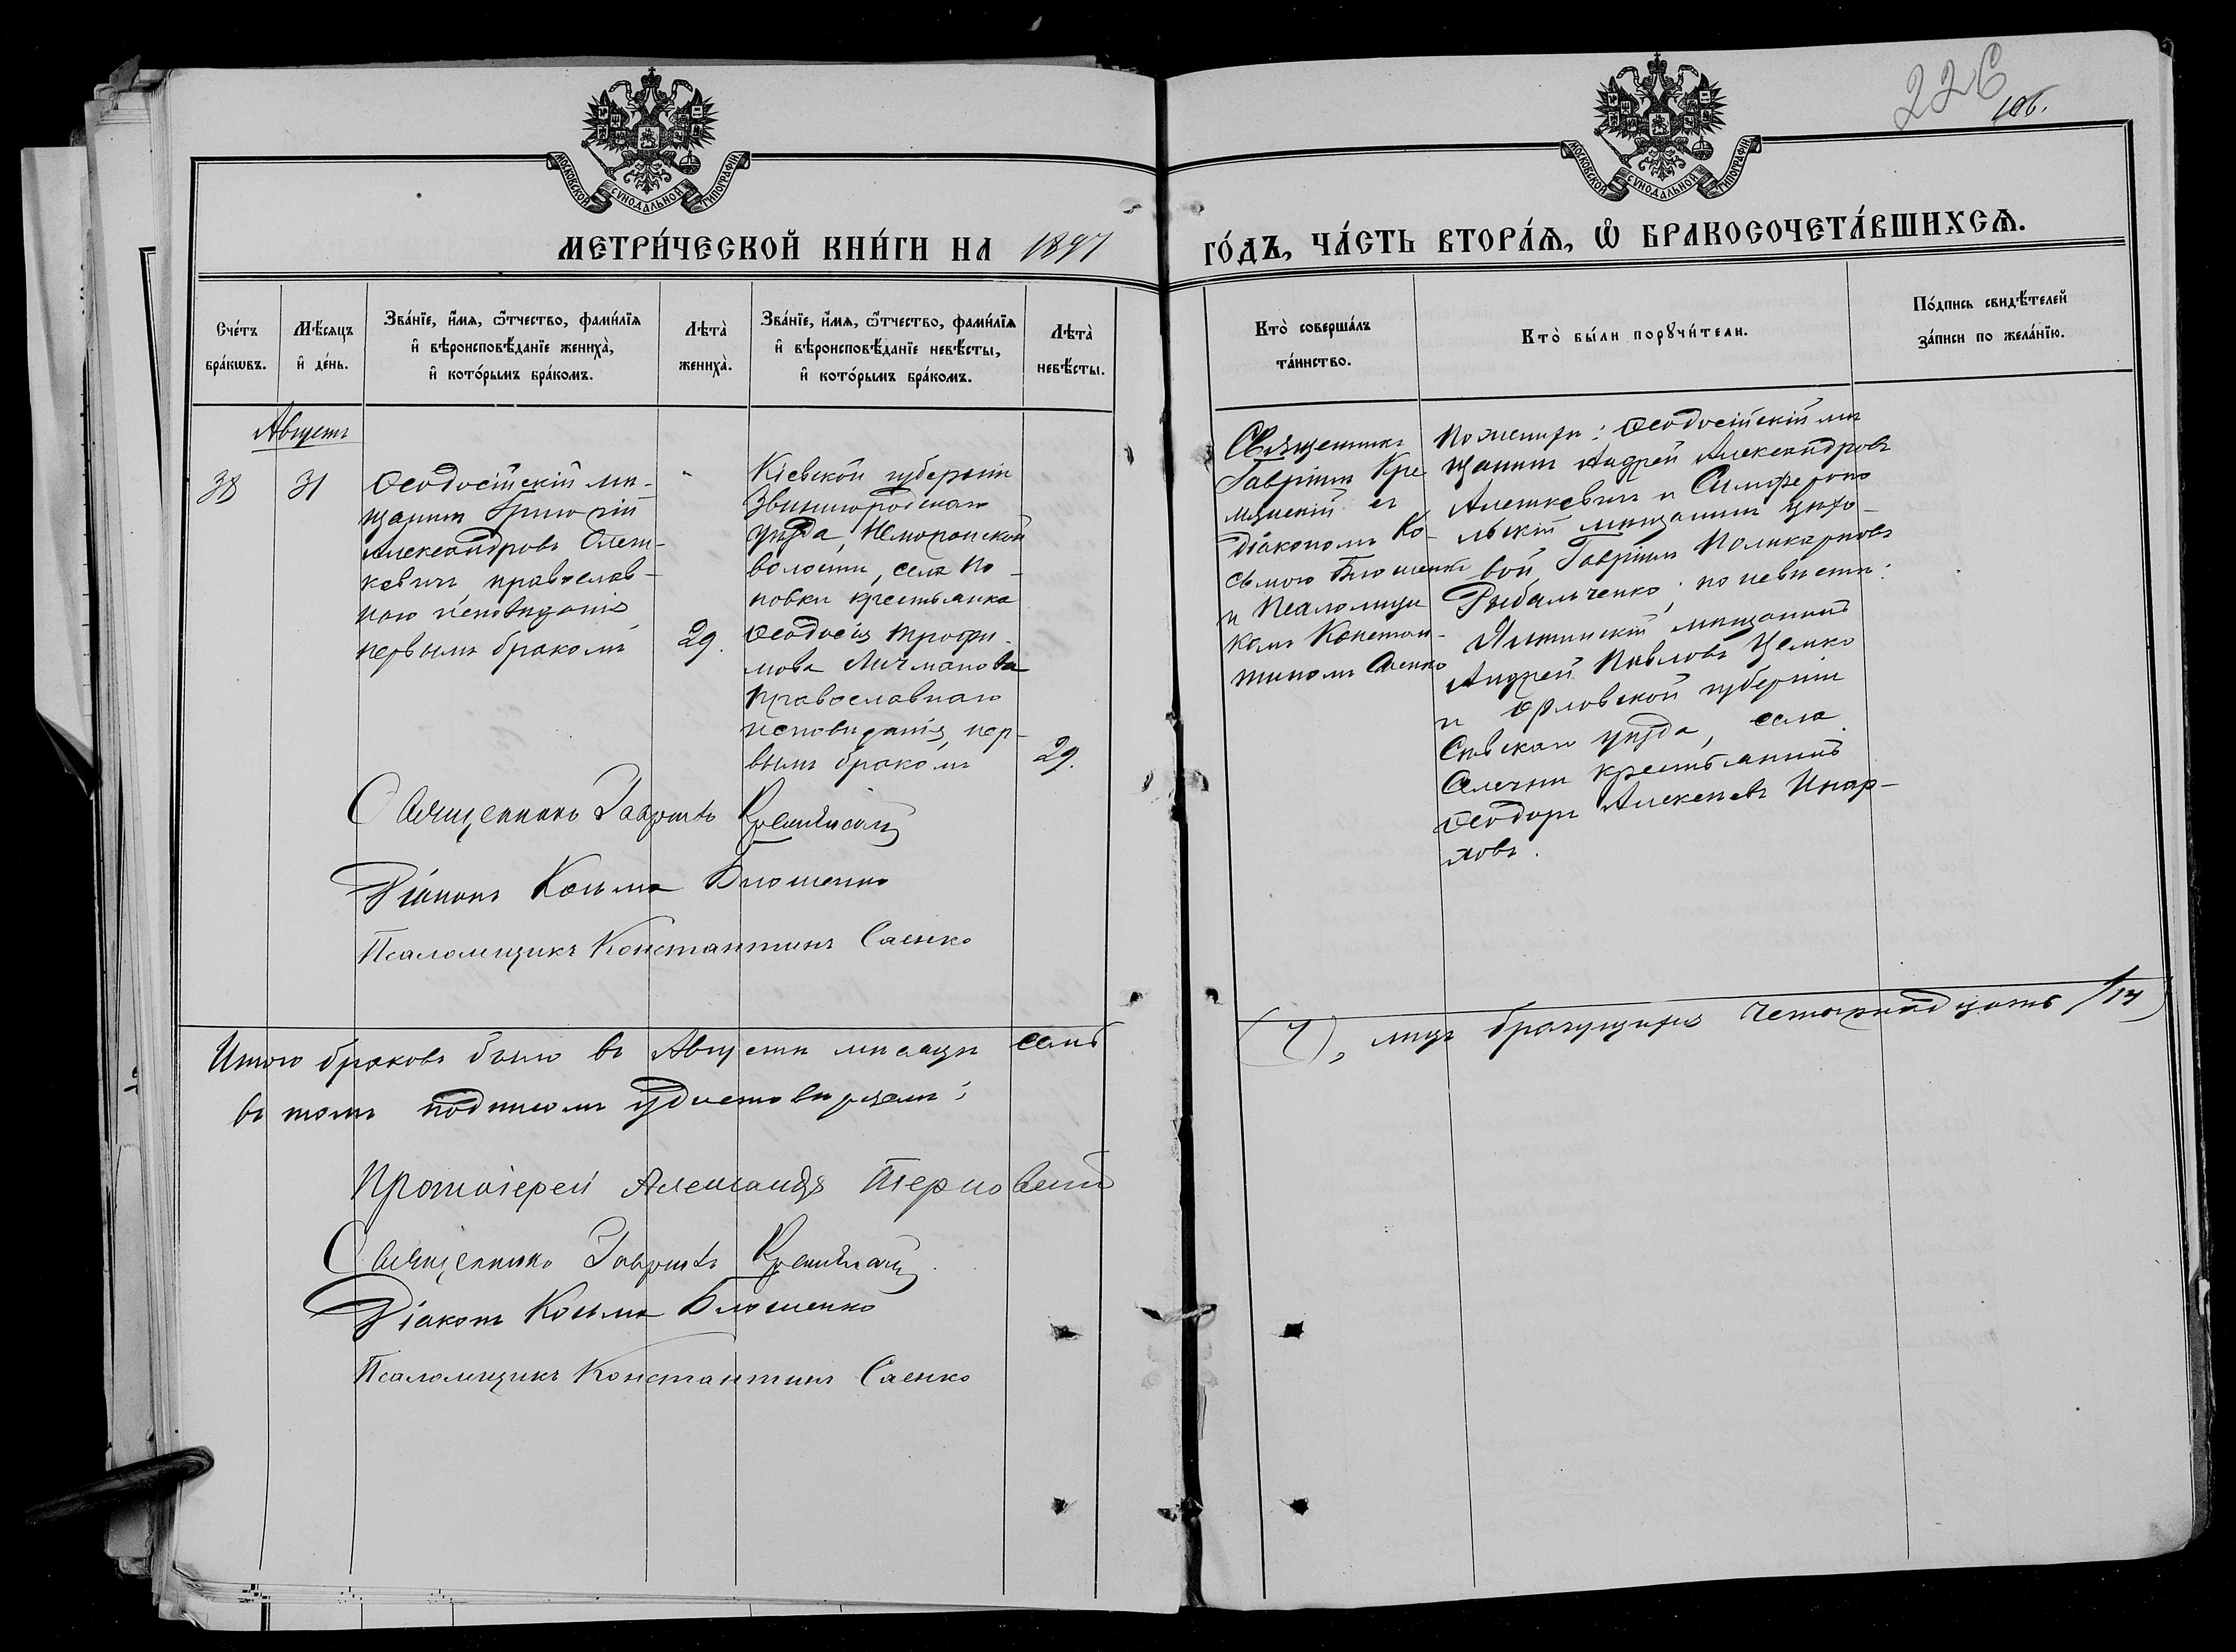 226
106.
МОСКОВСКОЙ СѴНОДАЛЬНОЙ ТИПОГРАФІИ
МОСКОВСКОЙ СѴНОДАЛЬНОЙ ТИПОГРАФІИ
МЕТРИ́ЧЕСКОЙ КНИ́ГИ НА 1897
ГО́ДЪ, ЧА́СТЬ ВТОРА́Я, Ѡ҆ БРАКОСОЧЕТА́ВШИХСЯ.
Сче́тъ
бра́кωвъ.
Мѣ́сяцъ
и҆ де́нь.
Зва́нїе, и҆́мя, ѻ҆́тчество, фами́лїя
и҆ вѣроисповѣ́данїе жениха̀,
и҆ кото́рымъ бра́комъ.
Лѣта̀
жениха̀.
Зва́нїе, и҆́мя, ѻ҆́тчество, фами́лїя
и҆ вѣроисповѣ́данїе невѣ́сты,
и҆ кото́рымъ бра́комъ.
Лѣта̀
невѣ́сты.
Кто̀ соверша́лъ
та́инство.
Кто̀ бы́ли порꙋчи́тели.
По́дпись свидѣ́телей
за́писи по жела́нїю.
Августъ
38
31
Ѳеодосійскій мѣ-
щанинъ Григорій
Александровъ Олеш-
кевичъ, православ-
наго исповѣданія
первымъ бракомъ
29.
Кіевской губерніи
Звенигородскаго
уѣзда, Неморожской
волости, села По-
повки крестьянка
Ѳеодосія Трофи-
мова Личманова
православнаго
исповѣданія, пер-
вымъ бракомъ
29.
Священникъ
Гавріилъ Кре
мянскій съ
діакономъ Ко-
сьмою Блошенко
и псаломщи
комъ Констан-
тиномъ Саенко
По женихѣ: Ѳеодосійскій мѣ
щанинъ Андрей Александровъ
Алешкевичъ и Симферопо
льскій мѣщанинъ цехо-
вой Гавріилъ Поликарповъ
Рыбальченко; по невѣстѣ:
Ялтинскій мѣщанинъ
Андрей Павловъ Цемко
и Орловской губерніи
Сѣвскаго уѣзда, села
крестьянинъ
Ѳеодоръ Алексѣевъ

Священникъ Гавріилъ
Діаконъ Косьма Блошенко
Псаломщикъ Константинъ Саенко
Итого браковъ было въ Августѣ мѣсяцѣ семь
(7), лицъ брачущихся четырнадцать (14)
въ томъ подписомъ удостовѣряемъ:
Протоіерей Александръ Терновскій
Священникъ Гавріилъ
Діаконъ Косьма Блошенко
Псаломщикъ Константинъ Саенко